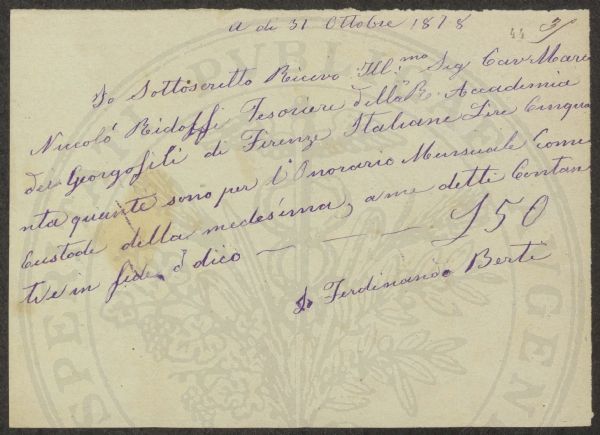 A di 31 Ottobre 1878
44 3
Io Sottoscritto Ricevo Ill.mo Sig Cav March
Niccolò Ridolfi Tesoriere della R. Accademia
dei Georgofili di Firenze Italiane Lire Cinqua
nta quante sono per l'Onorario Mensuale Come
Custode della medesima, a me detti Contan
ti e in fede, dico — — — — £ 50
Io Ferdinando Berti